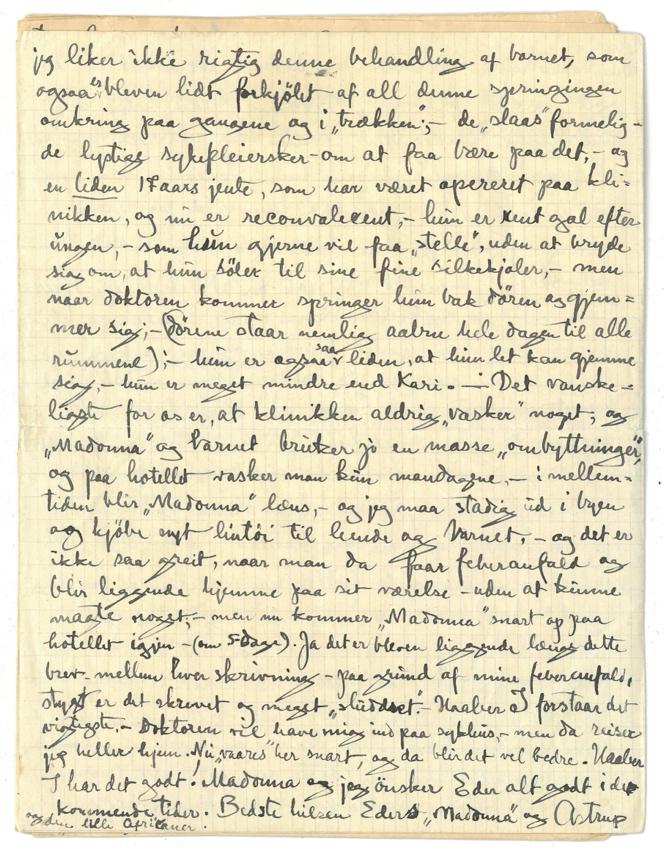 jeg liker ikke rigtig denne behandling af barnet, som
ogsaa er bleven lidt forkjølet af all denne springingen
omkring paa gangene og i „trækken“; – de „slaas“ formelig –
de lystige sykepleiersker – om at faa bære paa det, – og
en liden 17 aars jente, som har været opereret paa kli=
nikken, og nu er reconvalecent, – hun er rent gal efter
ungen, – som hun gjerne vil faa „stelle“, uden at bryde
sig om, at hun söler til sine fine silkekjoler, – men
naar doktoren kommer springer hun bak dören og gjem=
mer sig; – (dörene staar nemlig aabne hele dagen til alle
rummene); – hun er ogsaa saa liden, at hun let kan gjemme
sig, – hun er meget mindre end Kari. – Det vanske=
ligste for os er, at klinikken aldrig „vasker“ noget, og
„Madonna“ og barnet bruker jo en masse „ombyttninger“,
og paa hotellet vasker man kun mandagene, – i mellem=
tiden blir „Madonna“ læns, – og jeg maa stadig ud i byen
og kjöbe nyt lintöi til hende og barnet, – og det er
ikke saa greit, naar man da faar feberanfald og
blir liggende hjemme paa sit værelse – uden at kunne
magte noget, – men nu kommer „Madonna“ snart op paa
hotellet igjen – (om 5 dage). Ja det er bleven liggende længe dette
brev – mellem hver skrivning – paa grund af mine feberanfald,
stygt er det skrevet og meget „sluddret“. – Haaber I forstaar det
vigtigste, – Doktoren vil have mig ind paa sykehus, – men da reiser
jeg heller hjem. Nu „vaares“ her snart, og da blir det vel bedre. Haaber
I har det godt! Madonna og jeg önsker Eder alt godt i de
kommende tider. Bedste hilsen Eders „Madonna“ og Astrup
og den lille Afrikaner.